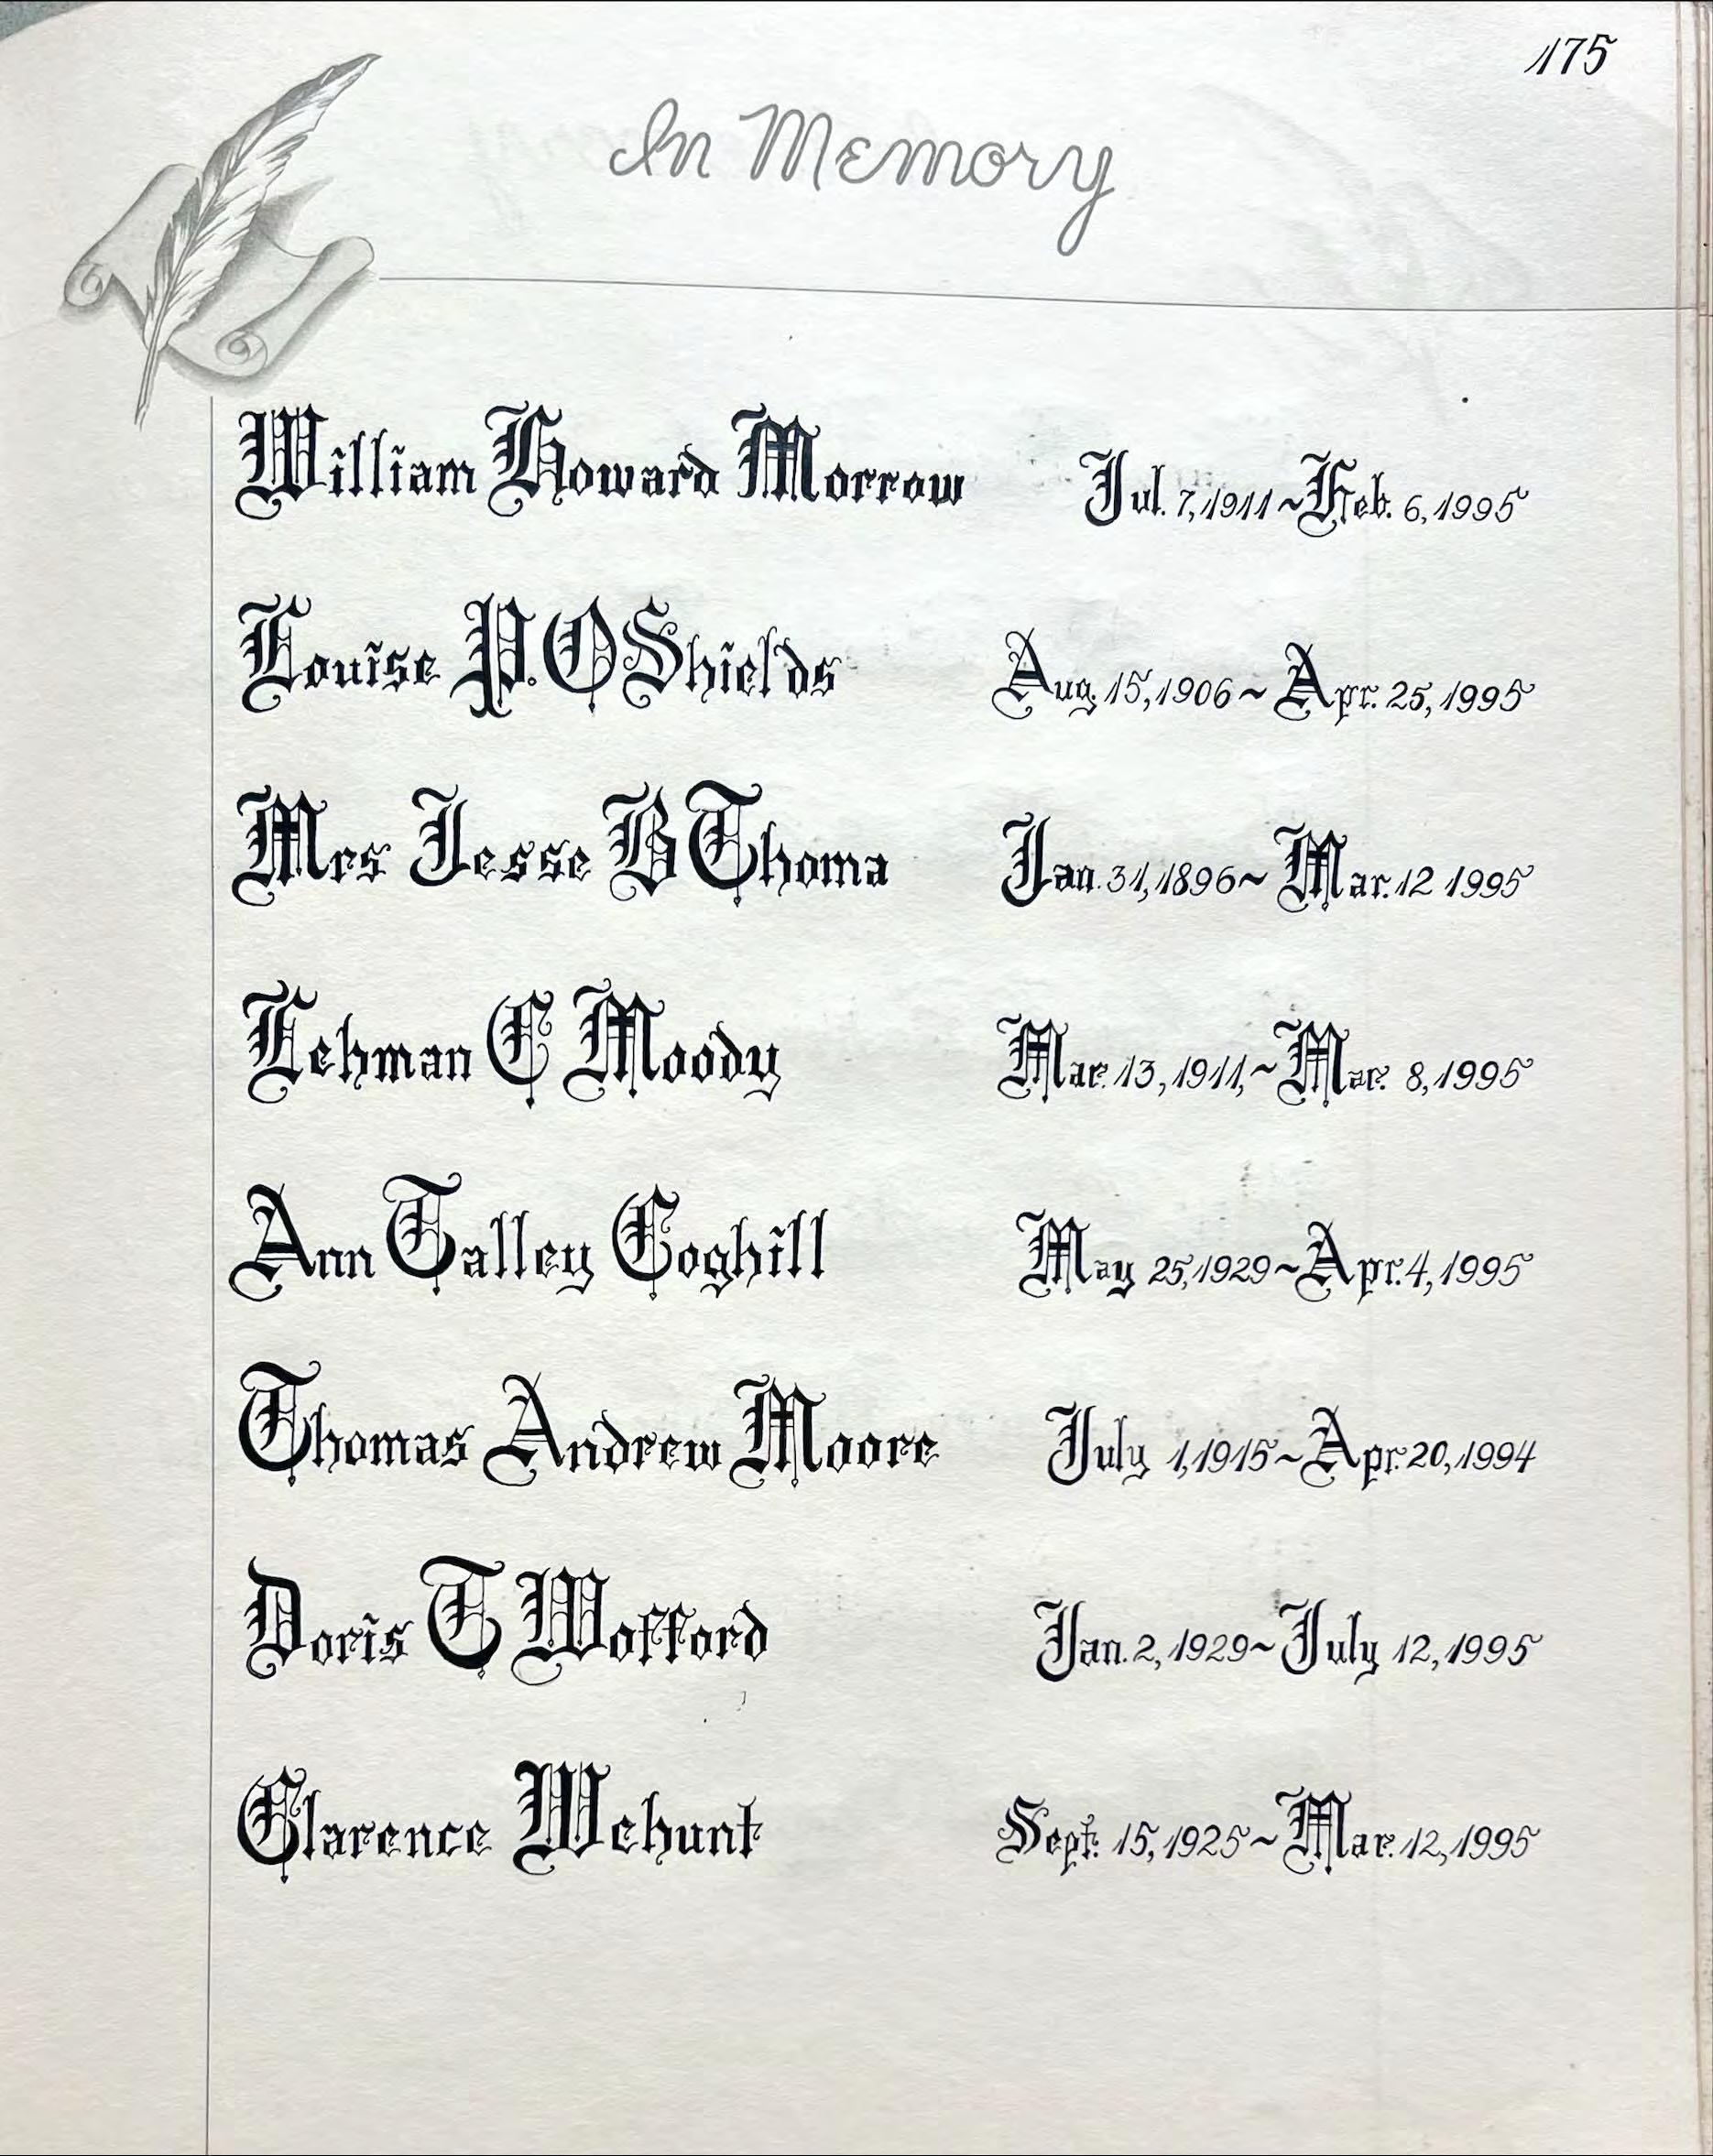 175
In Memory
William Howard Morrow Jul. 7, 1911 ~ Feb. 6, 1995
Louise P. O Shields Aug. 15, 1906 ~ Apr. 25, 1995
Mrs Jesse B Thoma Jan. 31, 1896 ~ Mar. 12 1995
Lehman C Moody Mar. 13, 1911, ~ Mar. 8, 1995
Ann Talley Coghill May 25, 1929 ~ Apr. 4, 1995
Thomas Andrew Moore July 1, 1915 ~ Apr. 20, 1994
Doris T Wofford Jan. 2, 1929 ~ July 12, 1995
Clarence Wehunt Sept. 15, 1925 ~ Mar. 12, 1995